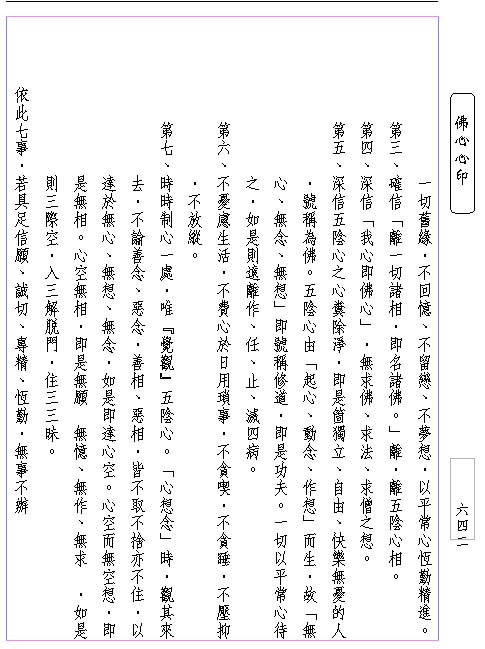 佛心心印
一切舊緣，不回憶、不留戀、不夢想，以平常心恆勤精進。
第三、確信「離一切諸相，即名諸佛。」離，離五陰心相。
第四、深信「我心即佛心」，無求佛、求法、求僧之想。
第五、深信五陰心之心糞除淨，即是箇獨立、自由、快樂無憂的人
，號稱為佛。五陰心由「起心、動念、作想」而生，故「無
心、無念、無想」即號稱修道，即是功夫。一切以平常心待
之，如是則遠離作、任、止、滅四病。
第六、不憂慮生活，不費心於日用瑣事，不貪喫，不貪睡，不壓抑
，不放縱。
第七、時時制心一處，唯『覺觀』五陰心。「心想念」時，觀其來
去，不論善念、惡念，善相、惡相，皆不取不捨亦不住，以
達於無心、無想、無念，如是即達心空。心空而無空想，即
是無相。心空無相，即是無願　無憶、無作、無求　，如是
則三際空，入三解脫門，住三三昧。
依此七事，若具足信願、誠切、專精、恆勤，無事不辦
六四二